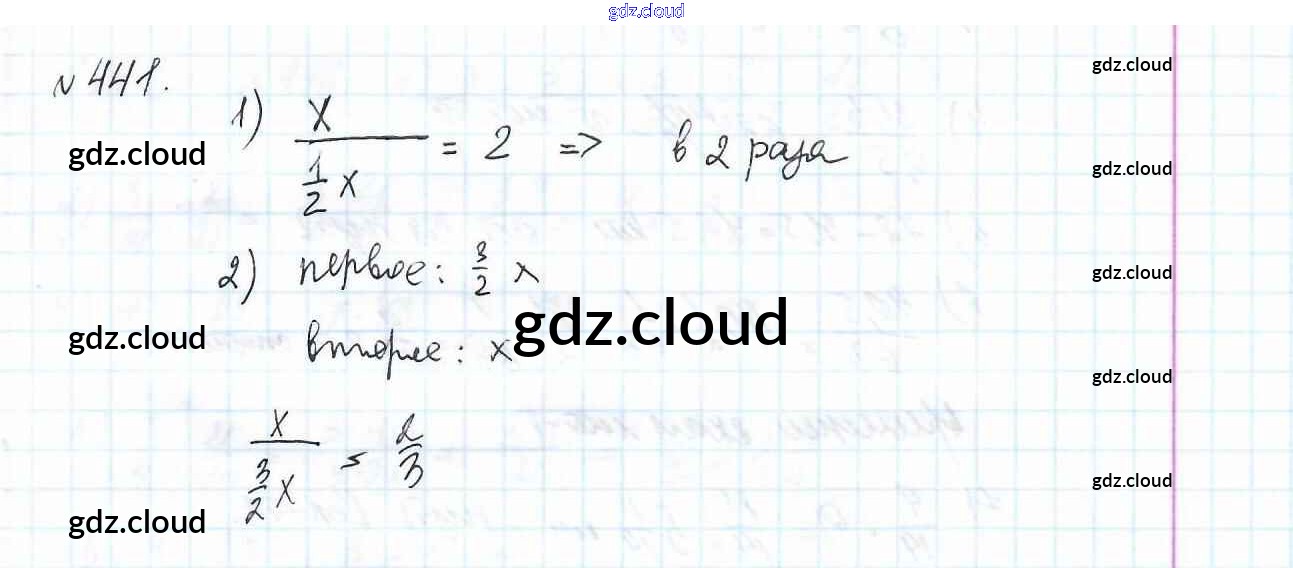 gdz.cloud
№ 441.
gdz.cloud
1) x / (1/2 x) = 2 => в 2 раза
gdz.cloud
gdz.cloud
gdz.cloud
2) первое: 3/2 x
gdz.cloud
второе: x
gdz.cloud
gdz.cloud
gdz.cloud
x / (3/2 x) = 2/3
gdz.cloud
gdz.cloud